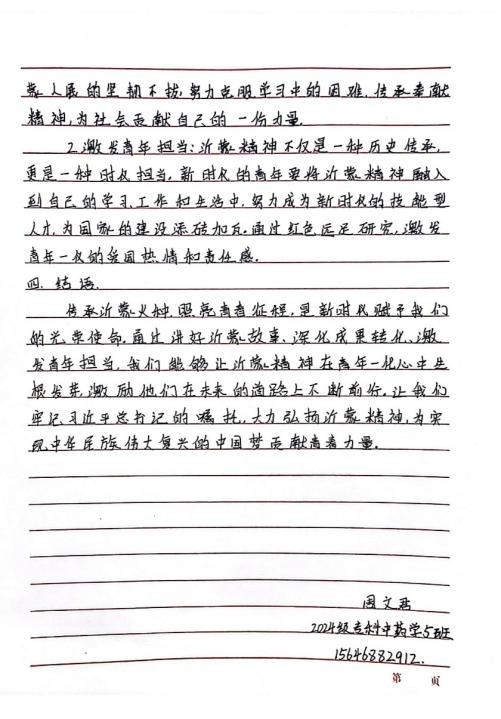 蒙人民的坚韧不拔,努力克服学习中的困难,传承奉献
精神,为社会贡献自己的一份力量.
2.激发青年担当:沂蒙精神不仅是一种历史传承,
更是一种时代担当,新时代的青年要将沂蒙精神融入
到自己的学习、工作和生活中,努力成为新时代的技能型
人才,为国家的建设添砖加瓦.通过红色远足研究,激发
青年一代的爱国热情和责任感.
四.结语.
传承沂蒙火种,照亮青春征程,是新时代赋予我们
的光荣使命,通过讲好沂蒙故事、深化成果转化、激
发青年担当,我们能够让沂蒙精神在青年一代心中生
根发芽,激励他们在未来的道路上不断前行.让我们
牢记习近平总书记的嘱托,大力弘扬沂蒙精神,为实
现中华民族伟大复兴的中国梦贡献青春力量.
周文君
2024级专科中药学5班
15646882912.
第 页